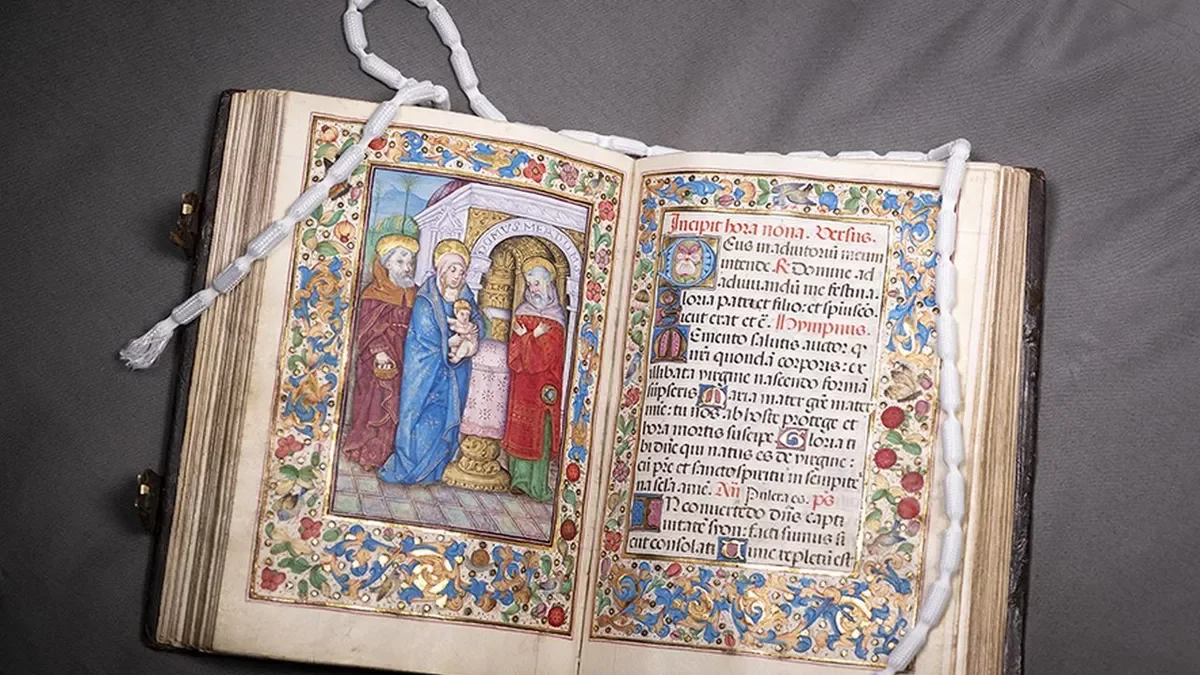 DOMUS MEA
Incipit hora nona. Versus.
Deus in adiutoriū meum
intende. R. Domine ad
adiuuandū me festina.
Gloria patri et filio: et spiui sco.
Sicut erat et c̄. Hympnus.
Memento salutis auctor q
nr̄i quondā corporis: ex
illibata virgine nascendo formā
sūpseris. Maria mater gr̄e mater
mīe: tu nos ab hoste protege et
hora mortis suscipe. Gloria ti
bi dn̄e qui natus es de virgine:
cū pr̄e et sancto spiritu in sempite
na secla amē. Añ Pulcra es. ps
In conuertēdo dn̄s capti
uitatē syon: facti sumus si
cut consolati. Tunc repletū est